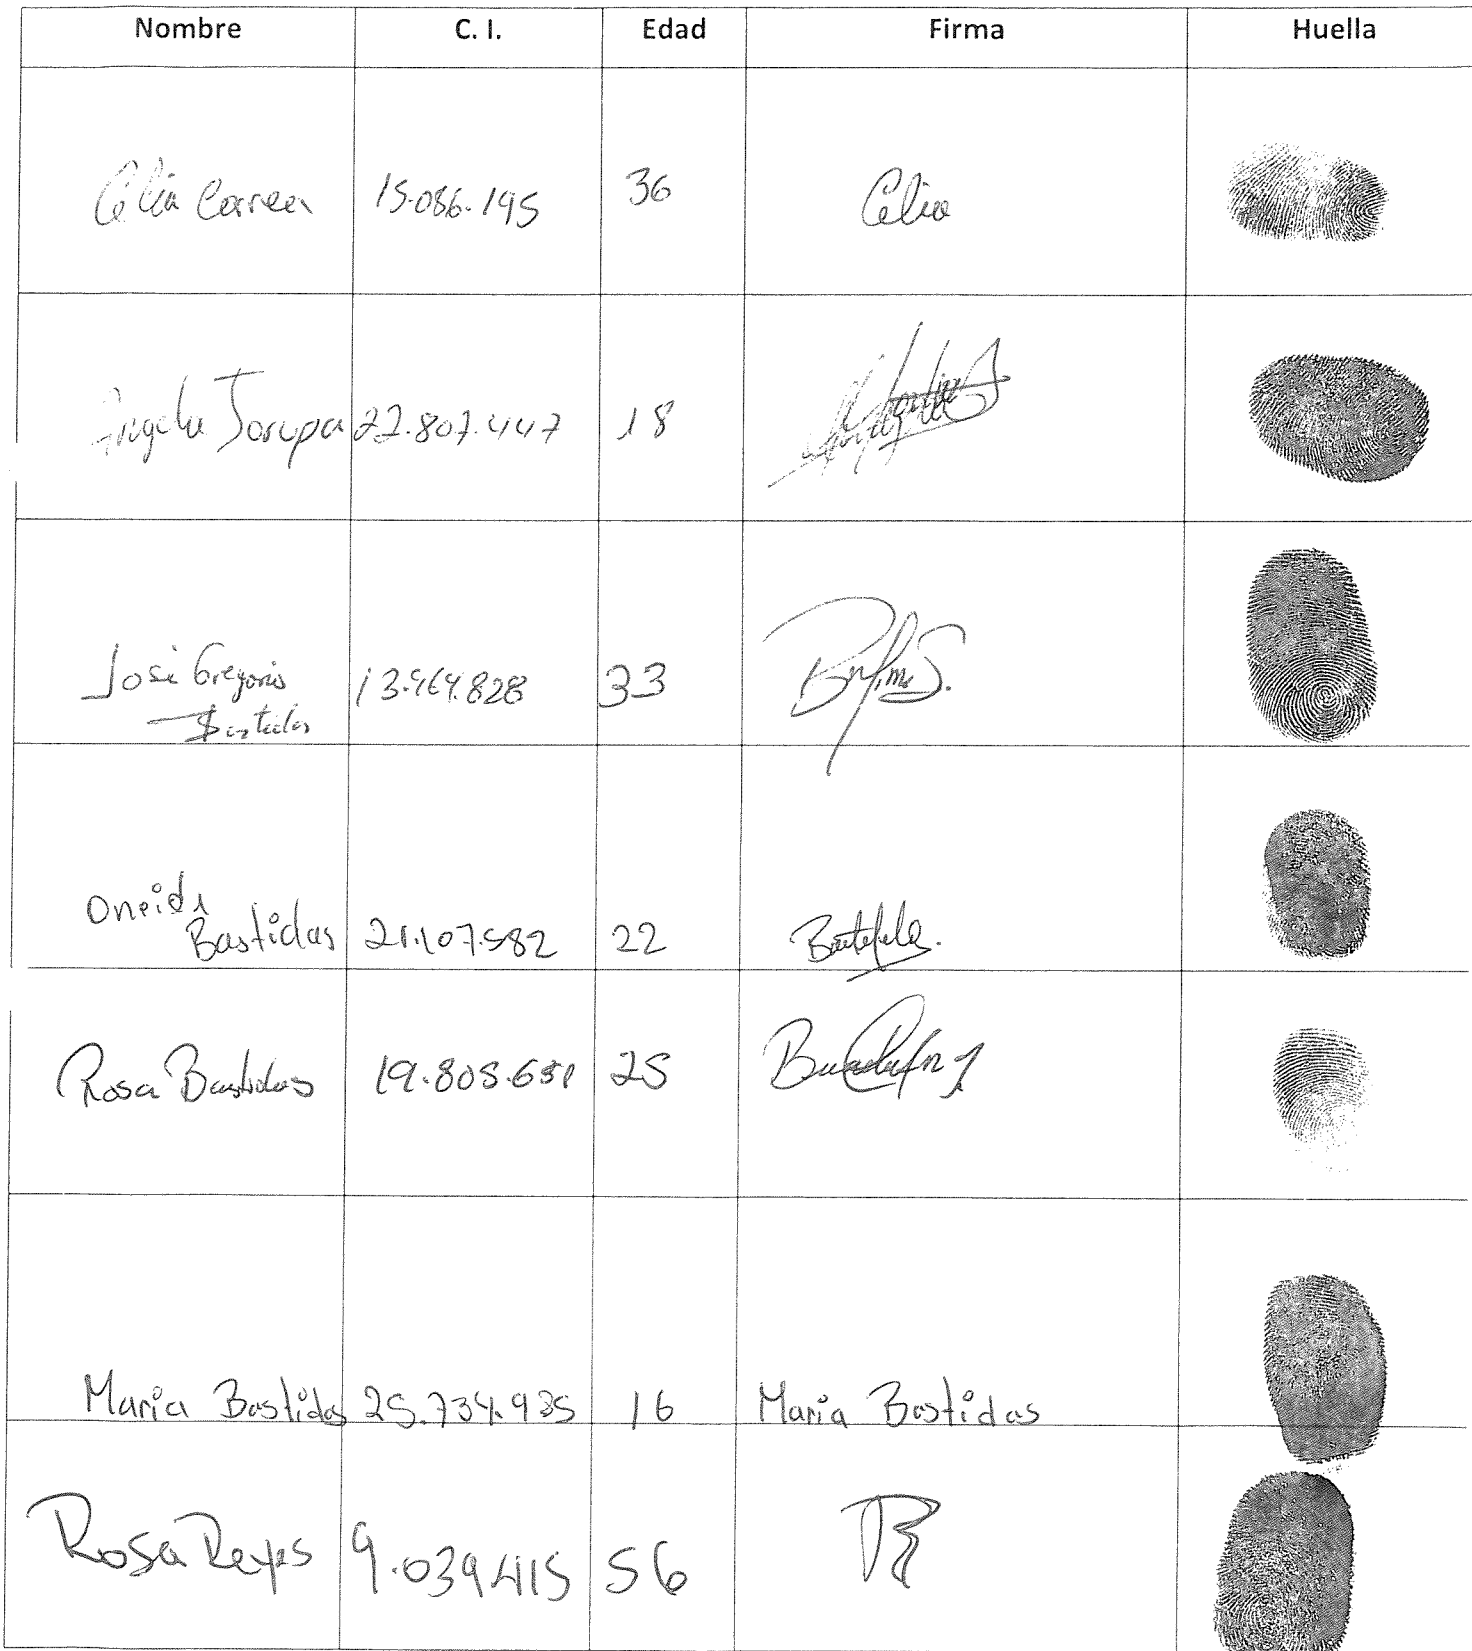 Nombre C. I. Edad Firma Huella
Celia Correa 15.086.195 36 Celia
Angela Jorupa 22.807.447 18
José Gregorio 13.964.828 33
Bastidas
Oneida
Bastidas 21.107.582 22
Rosa Bastidas 19.805.651 25
Maria Bastidas 25.734.935 16 Maria Bastidas
Rosa Reyes 9.039.415 56